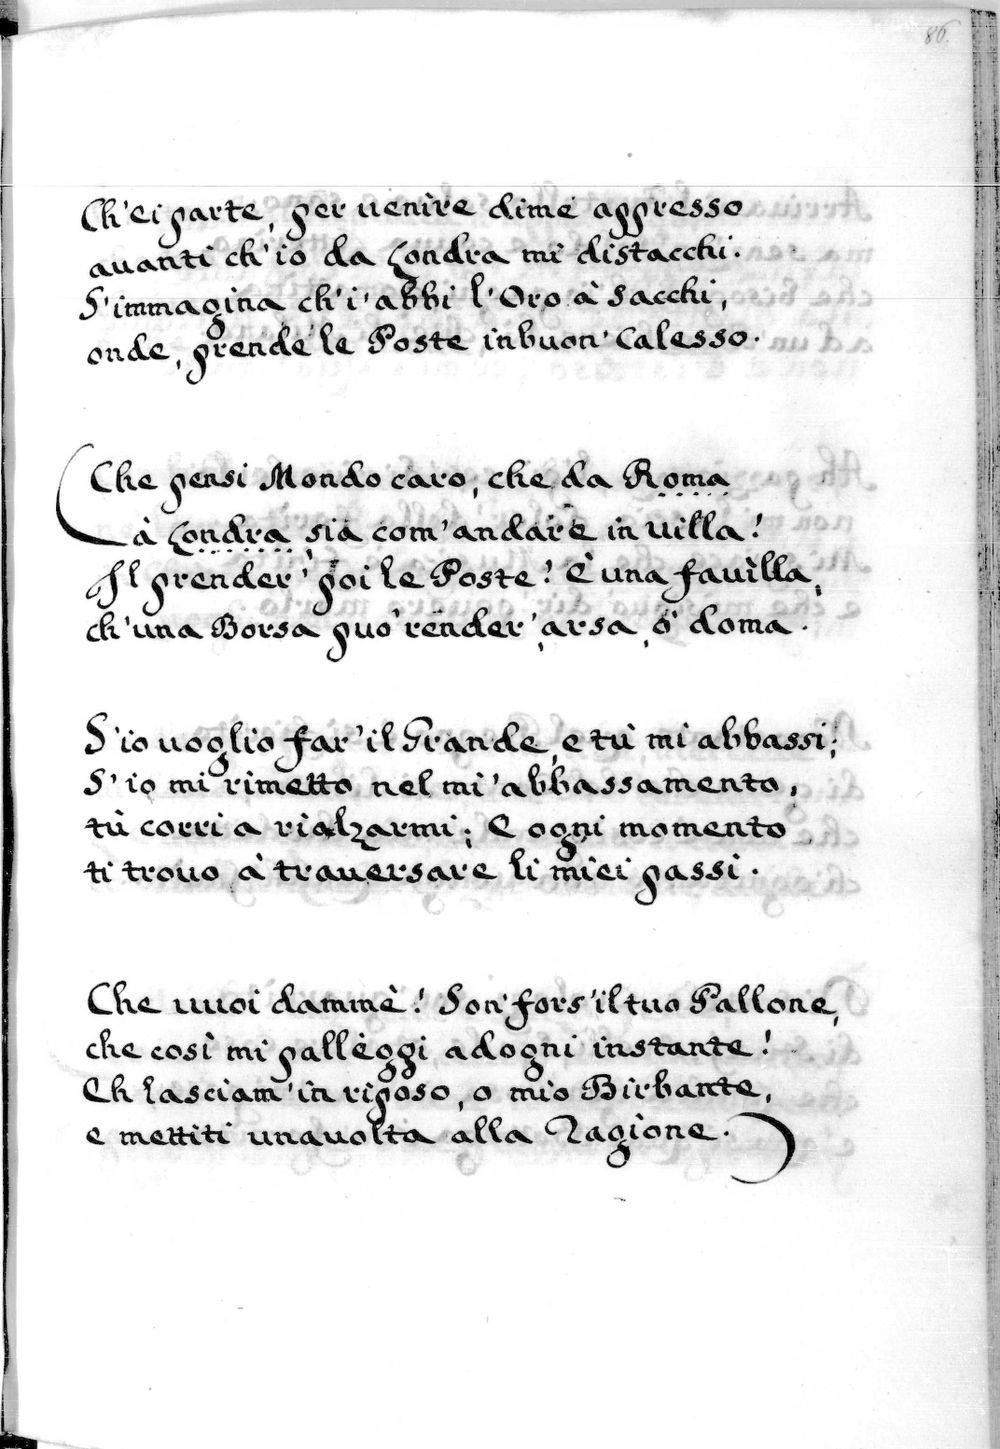 86.
Ch'ei parte, per uenire dime appresso
auanti ch'io da Londra mi distacchi.
S'immagina ch'i' abbi l'Oro à sacchi,
onde, prende le Poste inbuon' Calesso.
Che pensi Mondo caro, che da Roma
à Londra sia com'andare in uilla!
Il prender' poi le Poste! È una fauilla,
ch'una Borsa può render' arsa, ò doma.
S'io uoglio far'il Grande, e tù mi abbassi;
S'io mi rimetto nel mi'abbassamento,
tù corri a rialzarmi; E ogni momento
ti trouo à trauersare li miei passi.
Che uuoi dammè! Son'fors'il tuo Pallone,
che così mi palleggi adogni instante!
Eh lasciam'in riposo, o mio Birbante,
e mettiti unauolta alla Ragione.